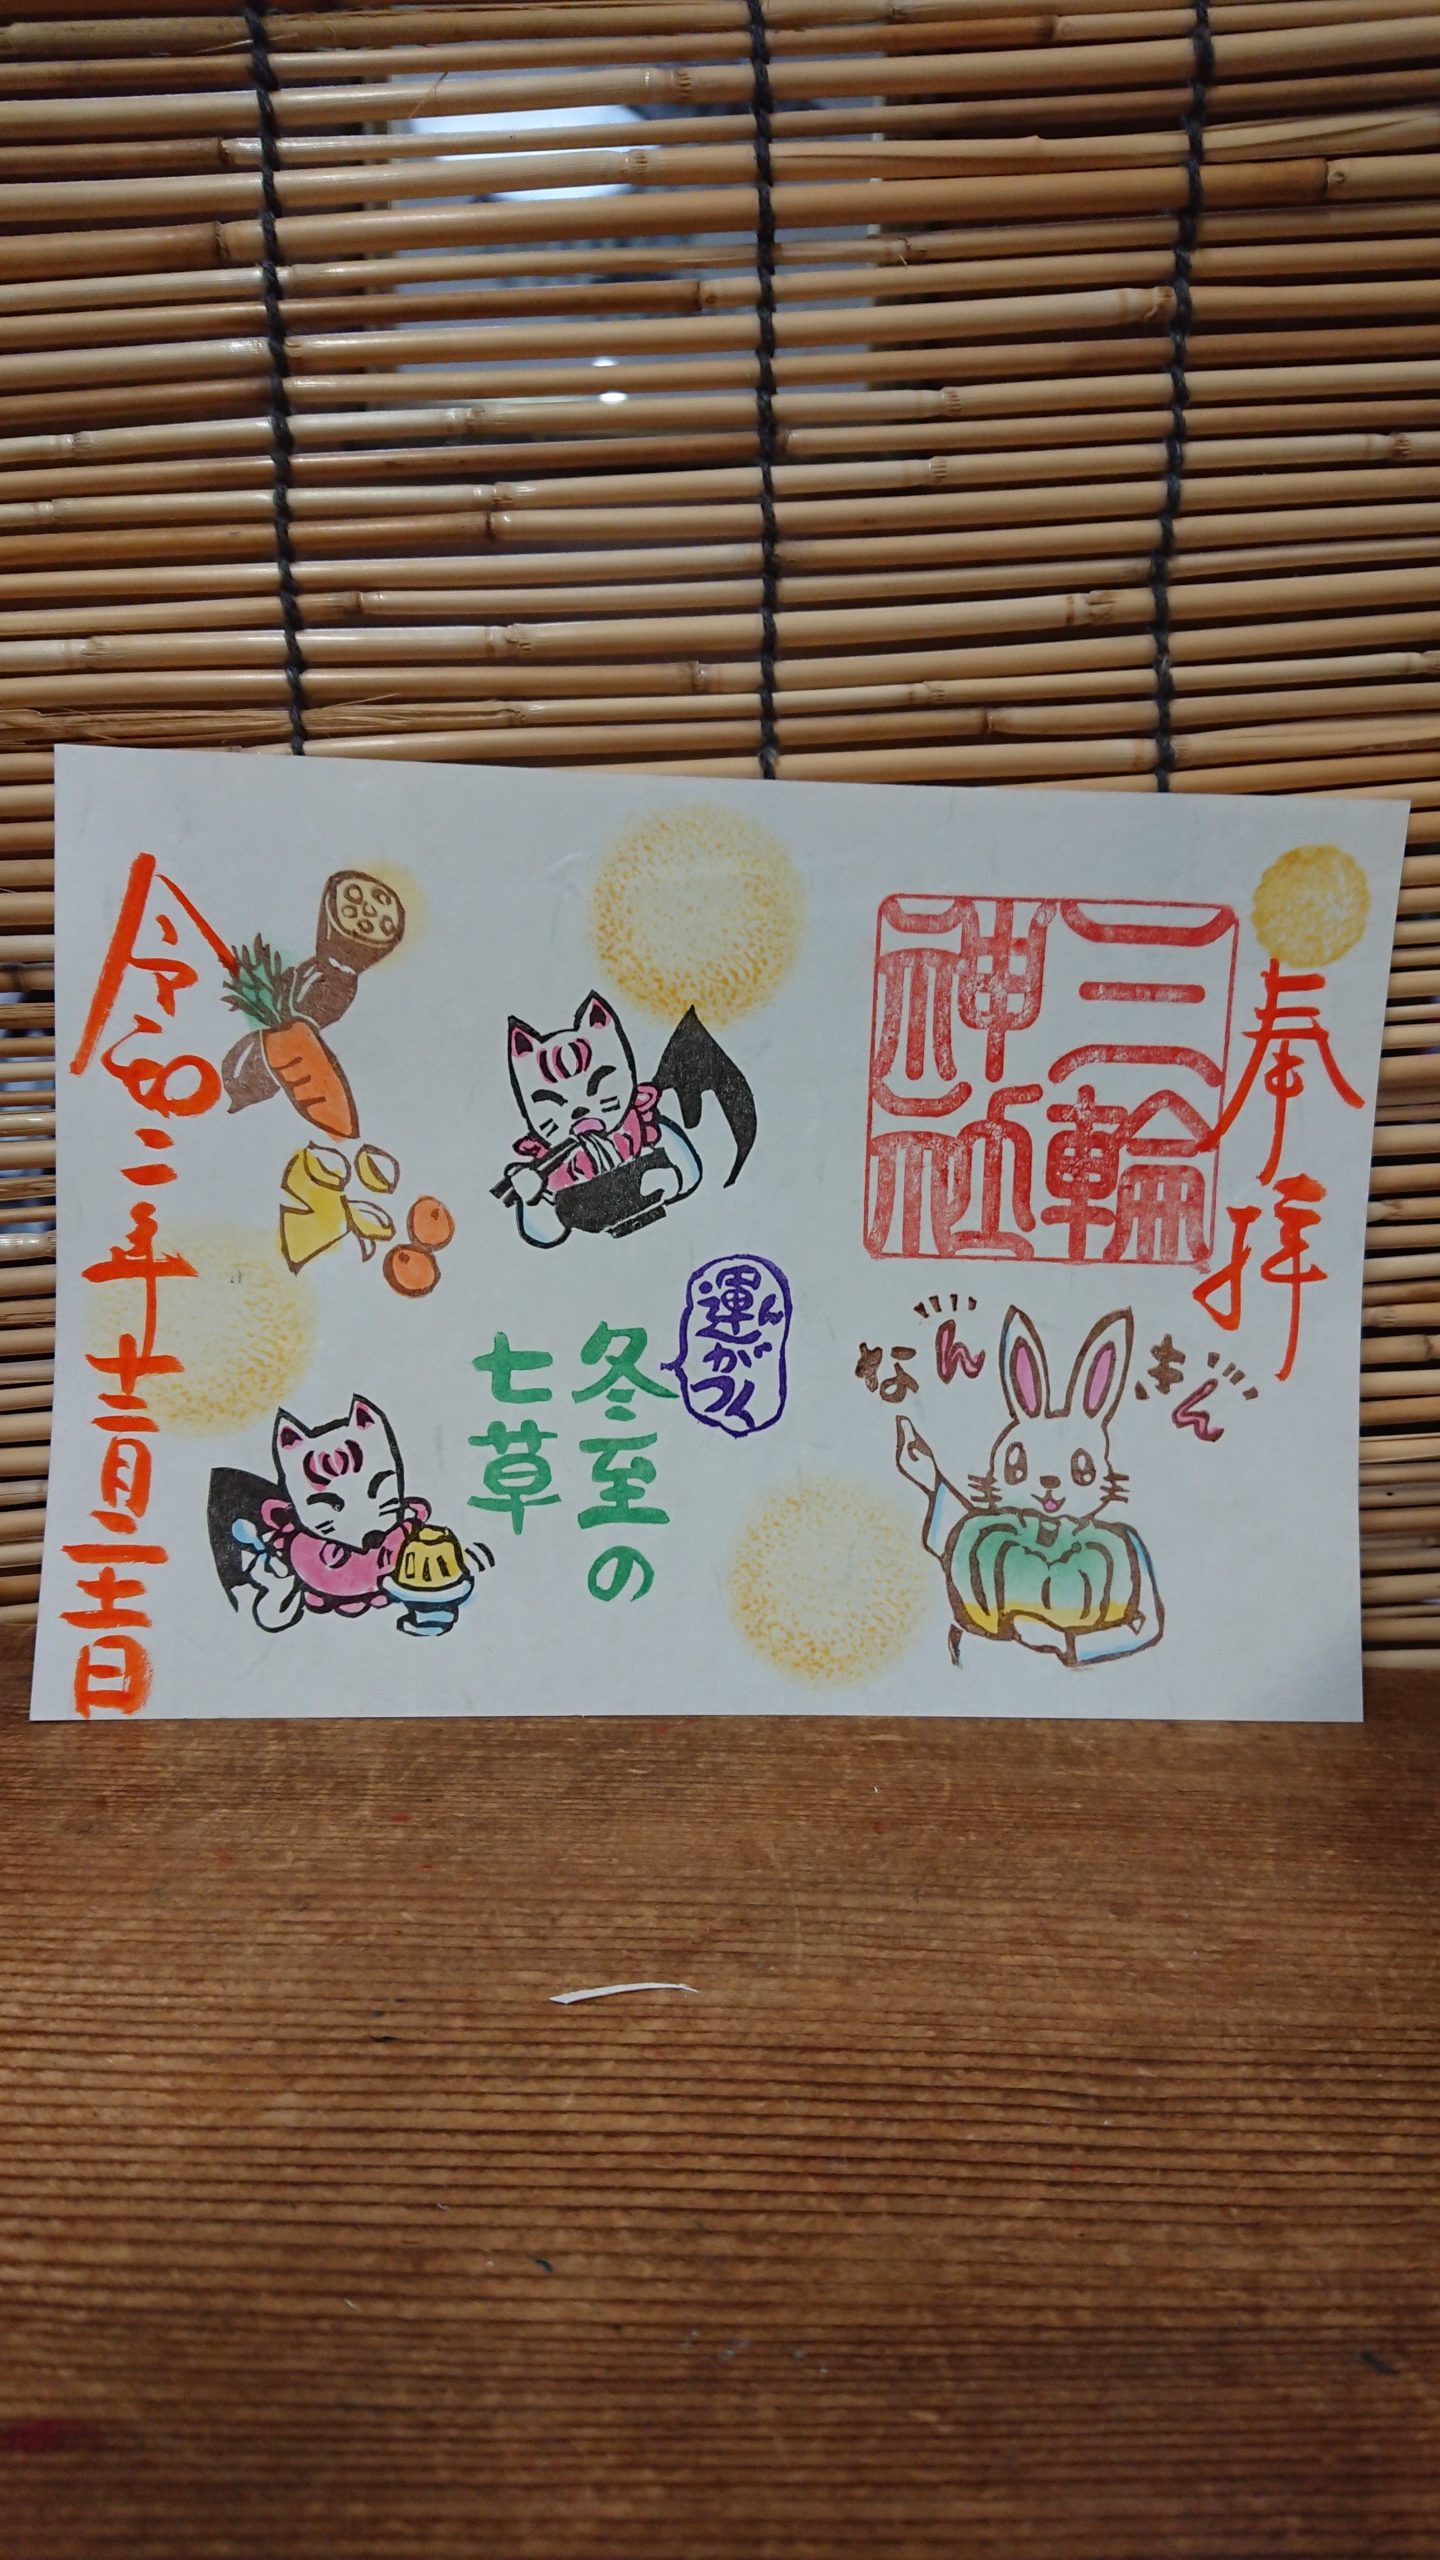 奉拝
三輪
神社
なんきん
運んがつく
冬至の
七草
令和二年十二月二十一日